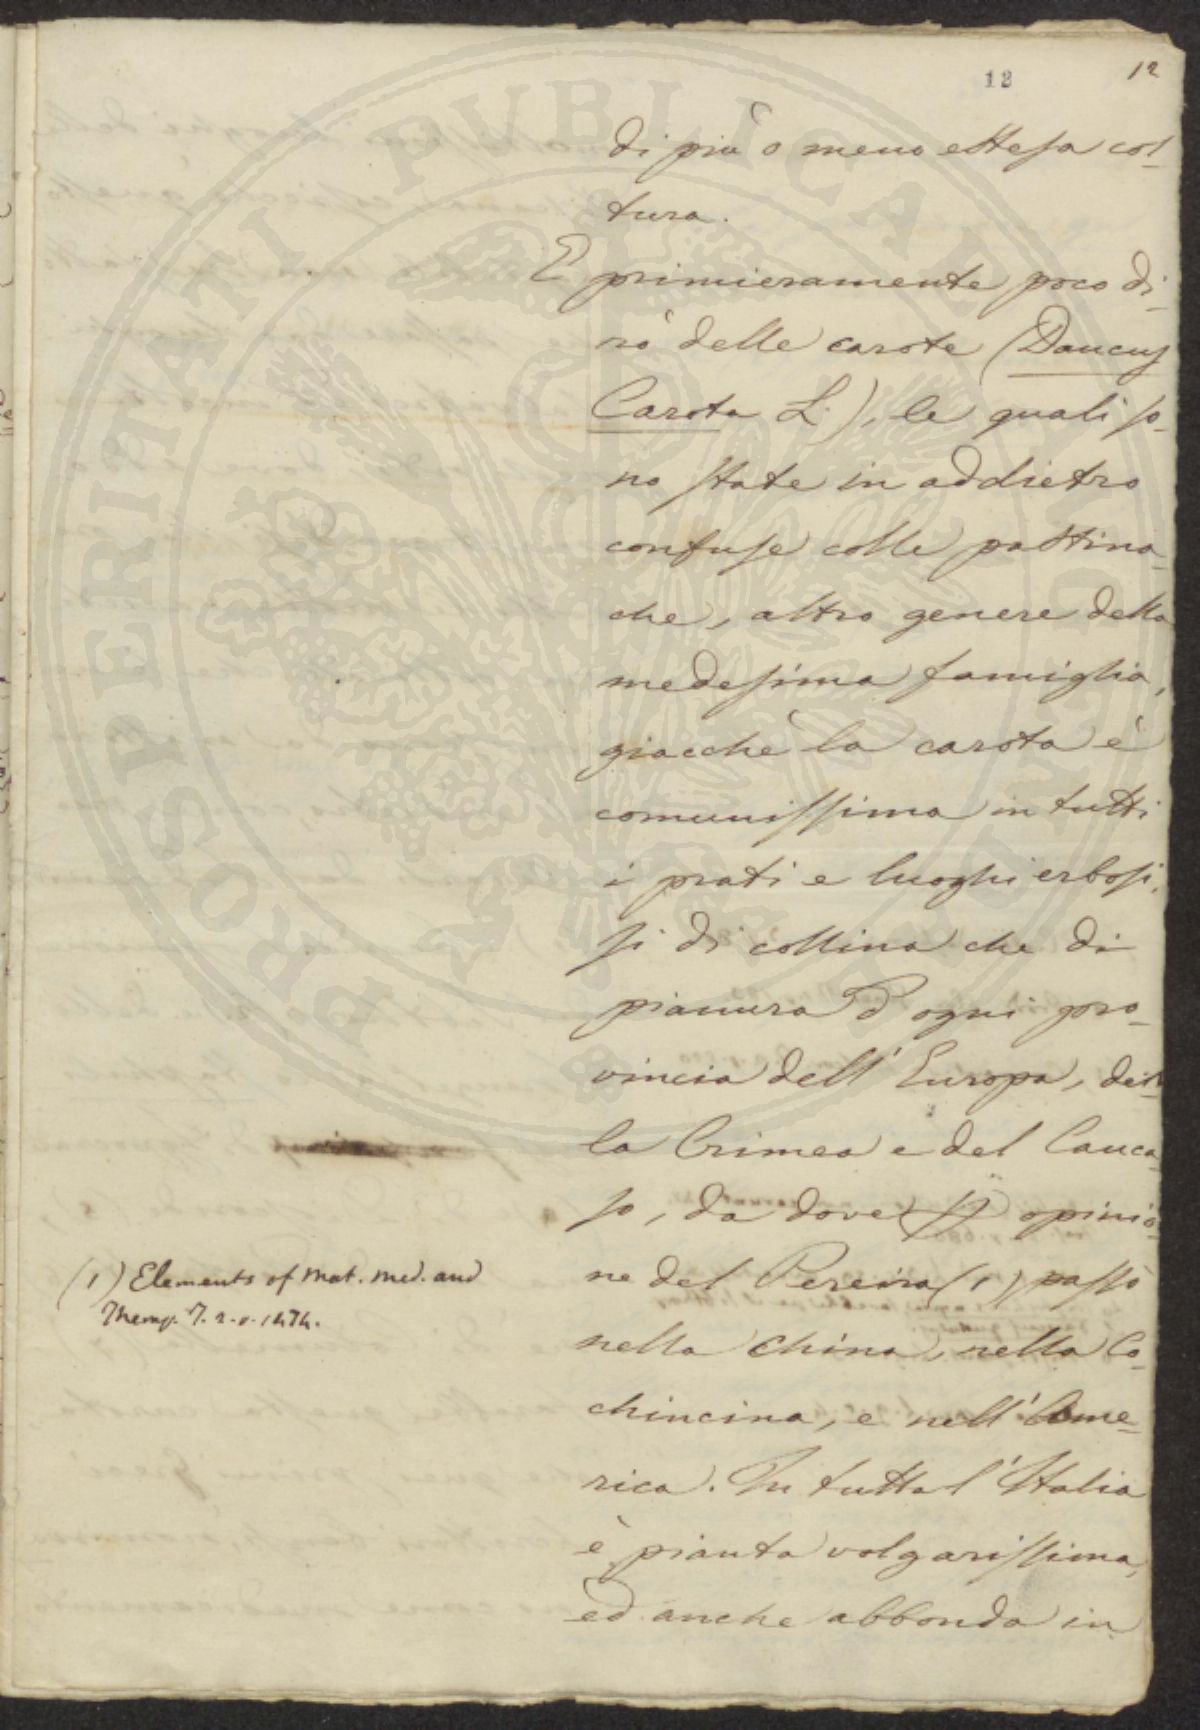 12
12
di più o meno estesa col-
tura.
E primieramente poco di-
rò delle carote (Daucus
Carota L.), le quali so-
no state in addietro
confuse colle pastina-
che, altro genere della
medesima famiglia,
giacchè la carota è
comunissima in tutti
i prati e luoghi erbosi,
si di collina che di
pianura d'ogni pro-
vincia dell'Europa, del-
la Crimea e del Cauca-
so, da dove opinio-
ne del Pereira (1) passò
nella China, nella Co-
chincina, e nell'Ame-
rica. In tutta l'Italia
è pianta volgarissima,
ed anche abbonda in
(1) Elements of Mat. med. and
Therap. T. 2. p. 1474.
PROSPERITATI PUBLICAE